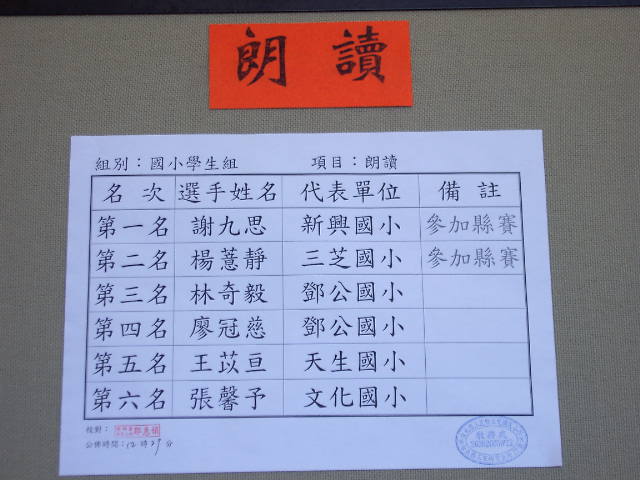 朗讀
組別：國小學生組 項目：朗讀
名次 選手姓名 代表單位 備註
第一名 謝九思 新興國小 參加縣賽
第二名 楊薏靜 三芝國小 參加縣賽
第三名 林奇毅 鄧公國小
第四名 廖冠慈 鄧公國小
第五名 王苡亘 天生國小
第六名 張馨予 文化國小
校對：
公佈時間：12時29分